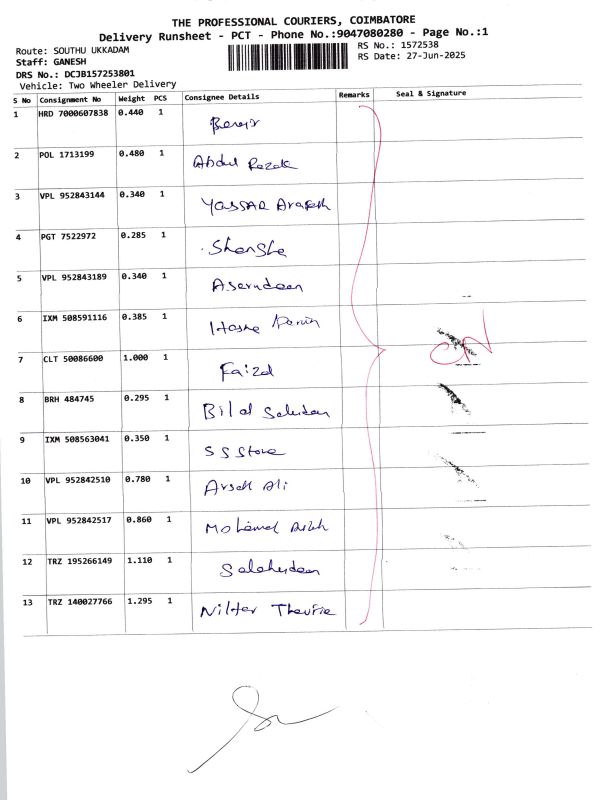 THE PROFESSIONAL COURIERS, COIMBATORE
Delivery Runsheet - PCT - Phone No.:9047080280 - Page No.:1
Route: SOUTHU UKKADAM
RS No.: 1572538
Staff: GANESH
RS Date: 27-Jun-2025
DRS No.: DCJB157253801
Vehicle: Two Wheeler Delivery
S No Consignment No Weight PCS Consignee Details Remarks Seal & Signature
1 HRD 7000607838 0.440 1
2 POL 1713199 0.480 1 Abdul Razak
3 VPL 952843144 0.340 1 YASSAR Arafath
4 PGT 7522972 0.285 1
5 VPL 952843189 0.340 1
6 IXM 508591116 0.385 1
7 CLT 50086600 1.000 1 Faizal
8 BRH 484745 0.295 1 Bilal
9 IXM 508563041 0.350 1 SS Store
10 VPL 952842510 0.780 1 Ali
11 VPL 952842517 0.860 1
12 TRZ 195266149 1.110 1 Salahudeen
13 TRZ 140027766 1.295 1